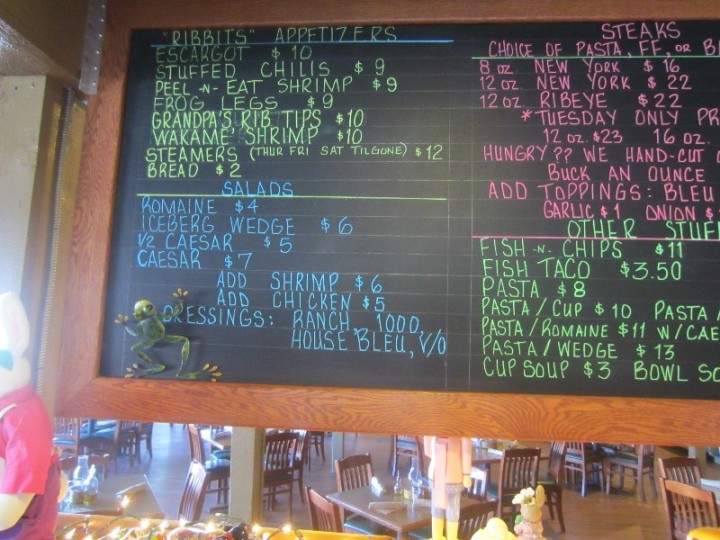 "RIBBITS" APPETIZERS
ESCARGOT $10
STUFFED CHILIS $9
PEEL -N- EAT SHRIMP $9
FROG LEGS $9
GRANDPA'S RIB TIPS $10
WAKAME' SHRIMP $10
STEAMERS (THUR FRI SAT TILGONE) $12
BREAD $2
SALADS
ROMAINE $4
ICEBERG WEDGE $6
1/2 CAESAR $5
CAESAR $7
ADD SHRIMP $6
ADD CHICKEN $5
DRESSINGS: RANCH, 1000,
HOUSE BLEU, V/O
STEAKS
CHOICE OF PASTA, FF, OR
8 OZ NEW YORK $16
12 OZ. NEW YORK $22
12 OZ. RIBEYE $22
*TUESDAY ONLY PR
12 OZ. $23 16 OZ.
HUNGRY?? WE HAND-CUT
BUCK AN OUNCE
ADD TOPPINGS: BLEU
GARLIC $1 ONION $
OTHER STUF
FISH -N- CHIPS $11
FISH TACO $3.50
PASTA $8
PASTA / CUP $10 PASTA /
PASTA / ROMAINE $11 W/CAE
PASTA / WEDGE $13
CUP SOUP $3 BOWL SO